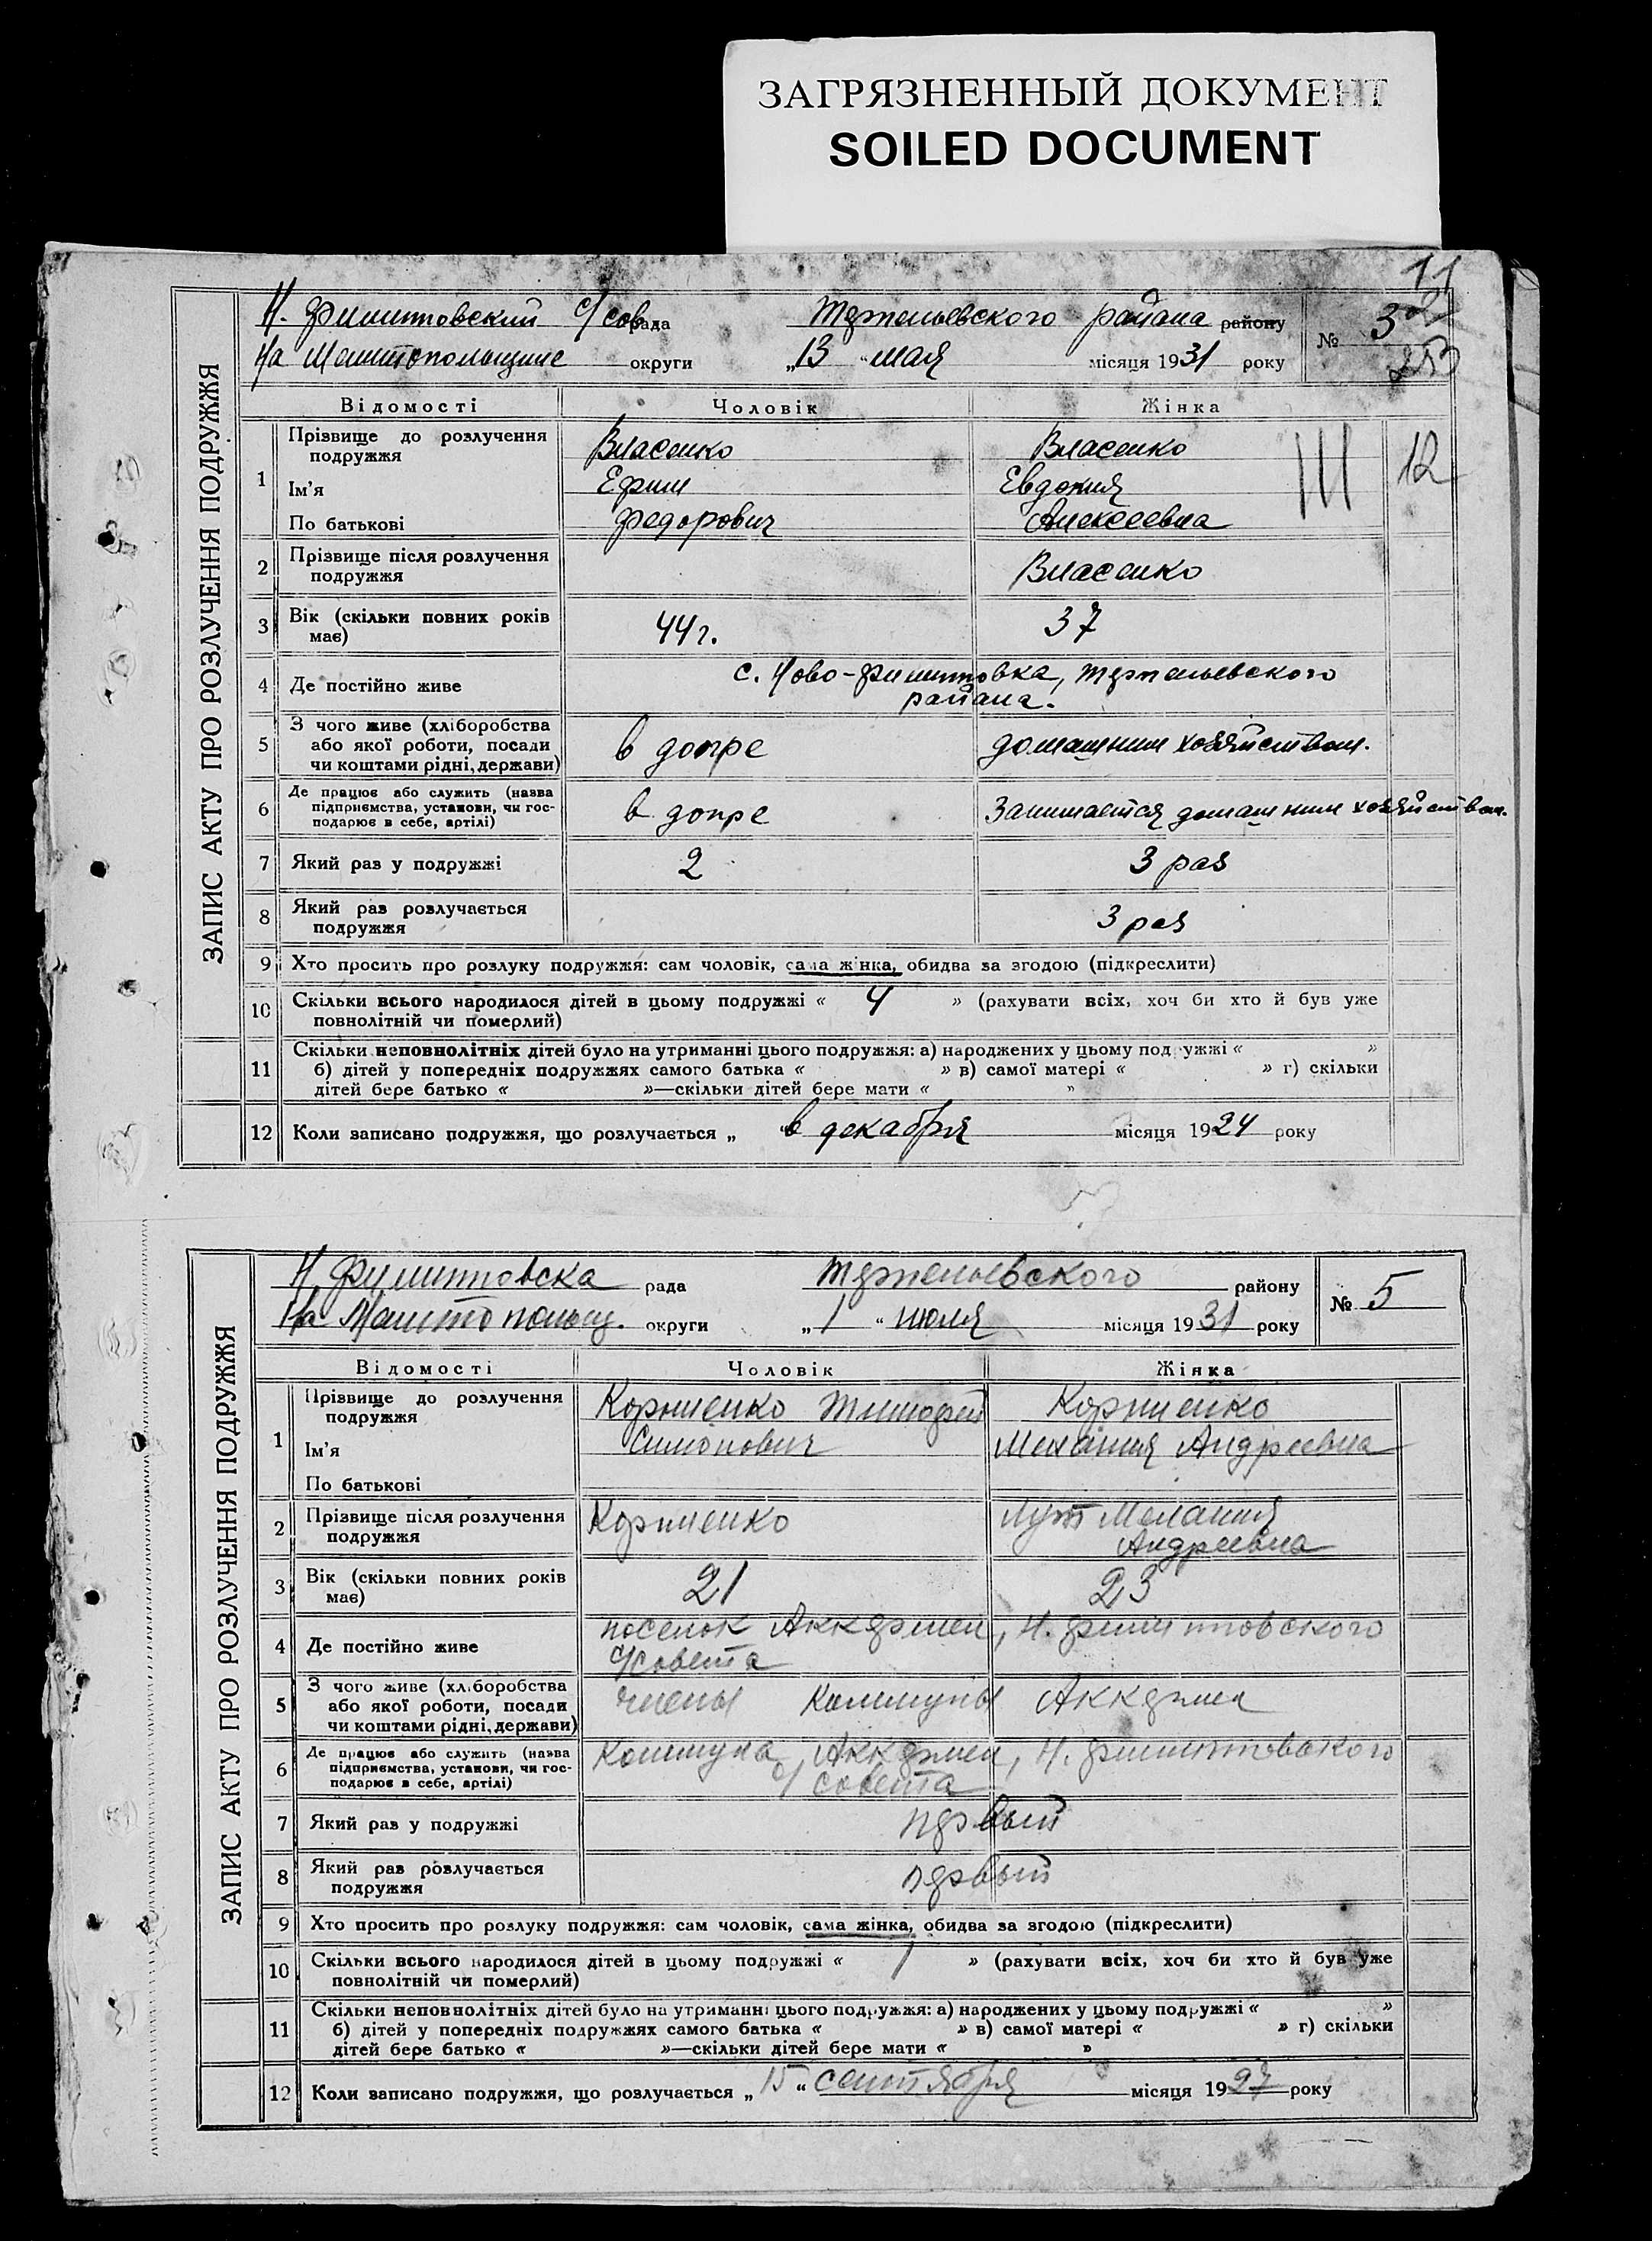 ЗАГРЯЗНЕННЫЙ ДОКУМЕНТ
SOILED DOCUMENT
11
ЗАПИС АКТУ ПРО РОЗЛУЧЕННЯ ПОДРУЖЖЯ
Н. Филиповский с/сов рада Терпеньевского района району № 3
На Мелитопольщине округи „13 “ мая місяця 1931 року 253
Відомості Чоловік Жінка
1 Прізвище до розлучення подружжя Власенко Власенко 12
Ім'я Ефим Евдокия
По батькові Федорович Алексеевна
2 Прізвище після розлучення
подружжя Власенко
3 Вік (скільки повних років
має) 44 г. 37
4 Де постійно живе с. Ново-Филиповка, Терпеньевского
района.
5 З чого живе (хліборобства
або якої роботи, посади
чи коштами рідні, держави) в допре домашним хозяйством.
6 Де працює або служить (назва
підприємства, установи, чи гос-
подарює в себе, артілі) в допре Занимается домашним хозяйством.
7 Який раз у подружжі 2 3 раз
8 Який раз розлучається
подружжя 3 раз
9 Хто просить про розлуку подружжя: сам чоловік, сама жінка, обидва за згодою (підкреслити)
10 Скільки всього народилося дітей в цьому подружжі « 4 » (рахувати всіх, хоч би хто й був уже
повнолітній чи померлий)
11 Скільки неповнолітніх дітей було на утриманні цього подружжя: а) народжених у цьому подружжі « »
б) дітей у попередніх подружжях самого батька « » в) самої матері « » г) скільки
дітей бере батько « »—скільки дітей бере мати « »
12 Коли записано подружжя, що розлучається „ “в декабря місяця 1924 року
ЗАПИС АКТУ ПРО РОЗЛУЧЕННЯ ПОДРУЖЖЯ
Н. Филиповска рада Терпеньевского району № 5
На Мелитопольщ. округи „1 “ июля місяця 1931 року
Відомості Чоловік Жінка
1 Прізвище до розлучення
подружжя Корниенко Тимофей Корниенко
Ім'я Симонович Мелания Андреевна
По батькові
2 Прізвище після розлучення
подружжя Корниенко Лут Мелания
Андреевна
3 Вік (скільки повних років
має) 21 23
4 Де постійно живе поселок Аккермен, Н. Филиповского
с/совета
5 З чого живе (хліборобства
або якої роботи, посади
чи коштами рідні, держави) члены Коммуны Аккермен
6 Де працює або служить (назва
підприємства, установи, чи гос-
подарює в себе, артілі) Коммуна Аккермен, Н. Филиповского
с/совета
7 Який раз у подружжі первый
8 Який раз розлучається
подружжя первый
9 Хто просить про розлуку подружжя: сам чоловік, сама жінка, обидва за згодою (підкреслити)
10 Скільки всього народилося дітей в цьому подружжі « 1 » (рахувати всіх, хоч би хто й був уже
повнолітній чи померлий)
11 Скільки неповнолітніх дітей було на утриманні цього подружжя: а) народжених у цьому подружжі « »
б) дітей у попередніх подружжях самого батька « » в) самої матері « » г) скільки
дітей бере батько « »—скільки дітей бере мати « »
12 Коли записано подружжя, що розлучається „15“ сентября місяця 1927 року